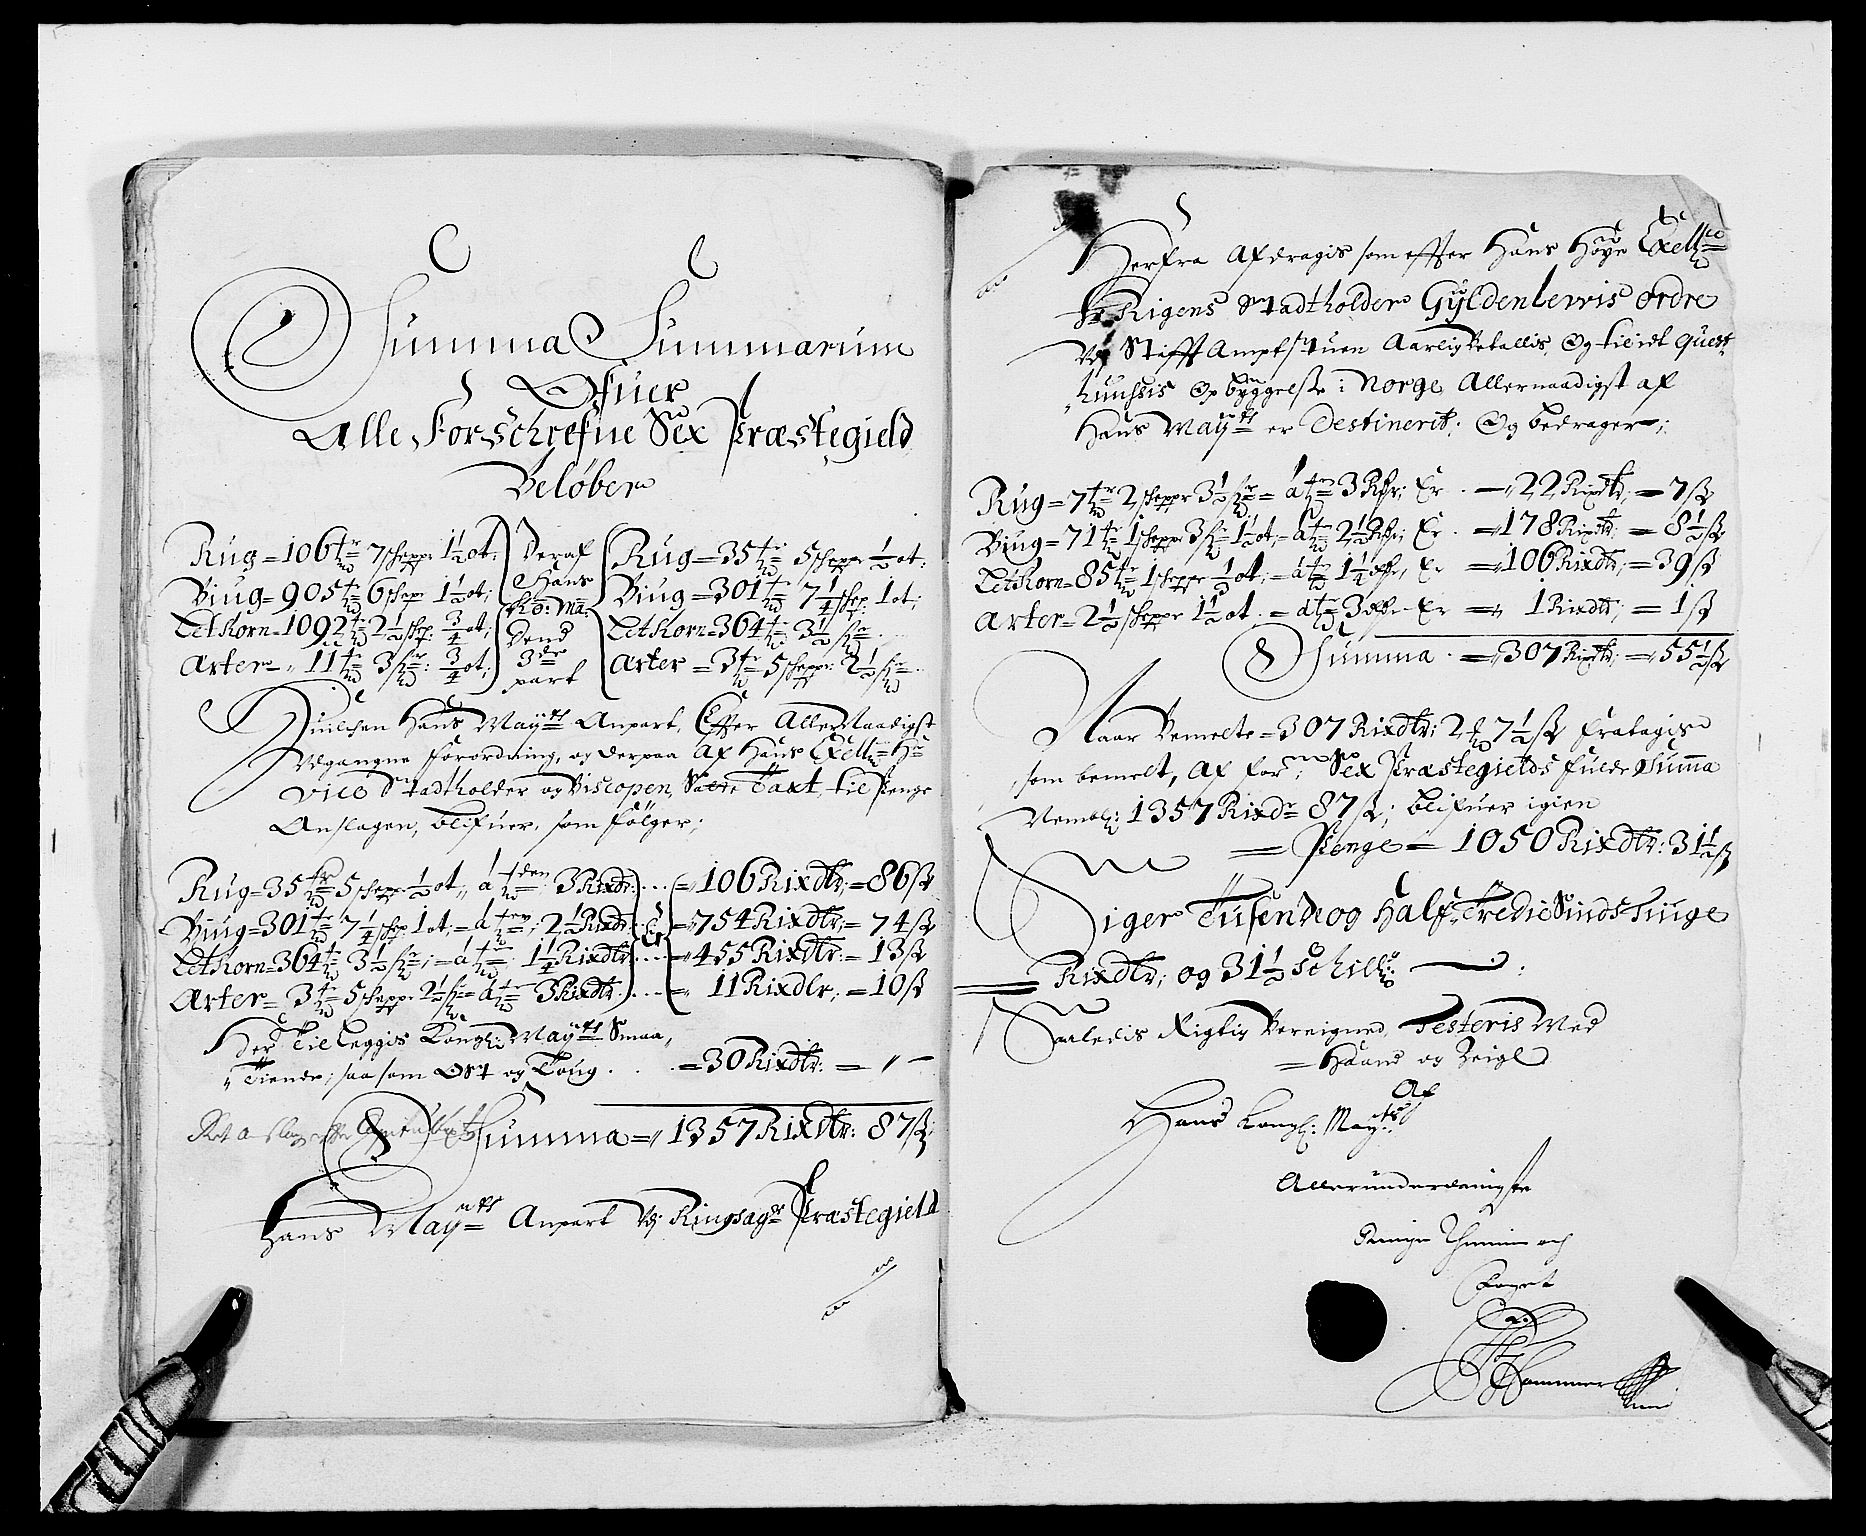 Summa Summarum
Ofuer
Alle Forschrefne Sex Præstegield
Beløber
Rug = 106 tr 7 schepr 1½ ot;
Biug = 905 tr 6 schepr 1½ ot;
Letkorn = 1092 tr 2½ schp: ¾ ot;
Arter = 11 tr 3 fr: ¾ ot;
Deraf
Hans
Ko: Ma:
Dend
3die
part
Rug = 35 tr 5 schepr ½ ot:
Biug = 301 tr 7¼ schep: 1 ot;
Letkorn = 364 tr 3½ fr
Arter = 3 tr 5 schepr: 2½ fr
Huilchen Hans Maytts Anpart, Effter Allernaadigst
Udgangne Forordning, og derpaa Af Hans Excell: Hr
Vice Stadtholder og Biscopen, Satte Taxt, til Penge
Anslagen, blifuer, som følger;
Rug = 35 tr 5 schepr ½ ot, á tden 3 Rixdr: = 106 Rixdlr: = 86 ß
Biug = 301 tr 7¼ schep 1 ot; = á tr 2½ Rixdr: Er = 754 Rixdlr: = 74 ß
Letkorn = 364 tr 3½ fr; = á tr 1¼ Rixdlr: = 455 Rixdlr: = 13 ß
Arter = 3 tr 5 schepr 2½ fr = á tr 3 Rixdlr = 11 Rixdlr; = 10 ß
Der Tilleggis Kongl: Maytts Smaa,
Tiende; saa som Ost og Toug . . . = 30 Rixdlr: = " —
Summa = 1357 Rixdlr: 87 ß;
Hans Maytts Anpart Vdj Ringsager Præstegield
Herfra Afdragis som effter Hans Høye Excell
Hr Rigens Stadtholder Gyldenlewis ordre
Vdj Stifft Amptstuen Aarlig Betallis, Og til det Quest
huusis Opbyggelse i Norge Allernaadigst af
Hans Maytt er Destinerit; Og bedrager;
Rug = 7 tr 2 schepr 3½ fr = á tr 3 Rdr; Er . — 22 Rixdlr; = 7 ß
Biug = 71 tr 1 schepr 3 fr 1½ ot; = á tr 2½ Rdr; Er . = 178 Rixdlr; = 8½ ß
Letkorn = 85 tr 1 schepr ½ ot; = á tr 1¼ dr, Er = 106 Rixdlr; = 39 ß
Arter = 2½ schepr 1½ ot . = á tr 3 dr Er = 1 Rixdlr; = 1 ß
Summa . = 307 Rixdlr; = 55½ ß
Naar Bemelte = 307 Rixdlr: 2 7½ ß Fratagis
som bemelt, af for: Sex Præstegields fulde Summa
Neml: 1357 Rixdr 87 ß; blifuer igien
= Penge = 1050 Rixdlr: 31½ ß
Siger Tusende og Half Tredie Sinds Tiuge
Rixdlr; og 31½ Schill:
Saaledis Rigtig Bereigned, Testeris Med
= Haand og Zeigl
Af
Hans Kongl: Maytts
Allerunderdanigste
Foget